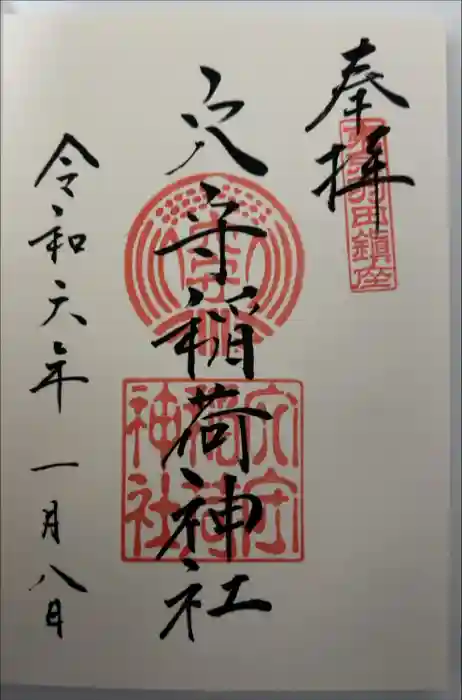 奉拝
東京羽田鎮座
穴守稲荷神社
穴守
稲荷
神社
令和六年一月八日